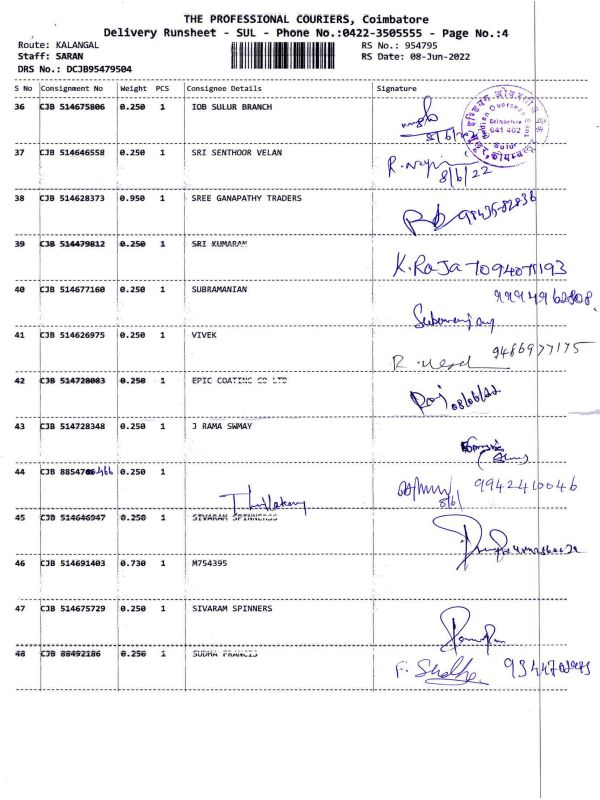 THE PROFESSIONAL COURIERS, Coimbatore
Delivery Runsheet - SUL - Phone No.:0422-3505555 - Page No.:4
Route: KALANGAL RS No.: 954795
Staff: SARAN RS Date: 08-Jun-2022
DRS No.: DCJB95479504
S No Consignment No Weight PCS Consignee Details Signature
36 CJB 514675806 0.250 1 IOB SULUR BRANCH
8/6/22
Indian Overseas Bank
Coimbatore
641 402
Sulur
37 CJB 514646558 0.250 1 SRI SENTHOOR VELAN
8/6/22
38 CJB 514628373 0.950 1 SREE GANAPATHY TRADERS
39 CJB 514479812 0.250 1 SRI KUMARAN
K.Raja 7094071193
40 CJB 514677160 0.250 1 SUBRAMANIAN
41 CJB 514626975 0.250 1 VIVEK
9486977175
42 CJB 514728083 0.250 1 EPIC COATING CO LTD
Raj 08/06/22
43 CJB 514728348 0.250 1 J RAMA SWMAY
44 CJB 8854706466 0.250 1
Thillakany
8/6/ 9942410046
45 CJB 514646947 0.250 1 SIVARAM SPINNERSS
46 CJB 514691403 0.730 1 M754395
47 CJB 514675729 0.250 1 SIVARAM SPINNERS
48 CJB 88492186 0.250 1 SUDHA FRANCIS
F. Sudha